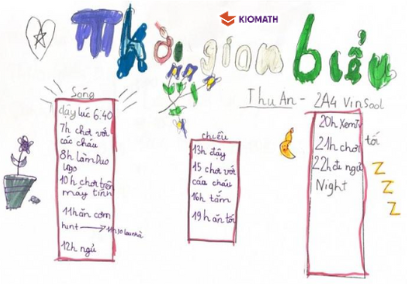 KIOMATH
Thời gian biểu
Thu An - 2A4 VinSool
Sáng
dậy lúc 6:40
7h chơi với
các cháu
8h làm
lego
10h chơi trên
máy tính
11h ăn cơm
hint →
12h ngủ
chiều
13h dậy
15 chơi với
các cháu
16h tắm
19h ăn tối
tối
20h xem
21h chơi
22h đi ngủ
Night
Z
Z
Z